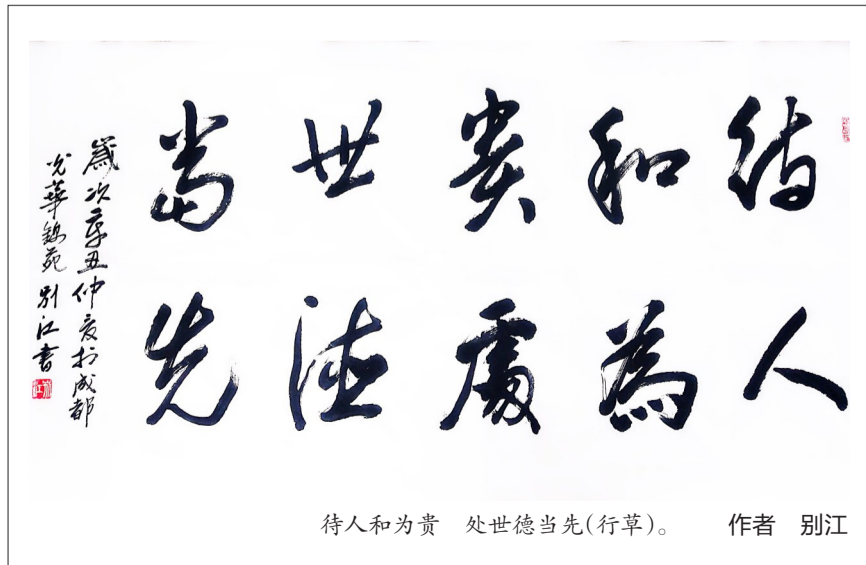 待人
和為
貴處
世德
當先
歲次辛丑仲夏於成都
光華錦苑 别江書
待人和为贵　处世德当先(行草)。　作者　别江